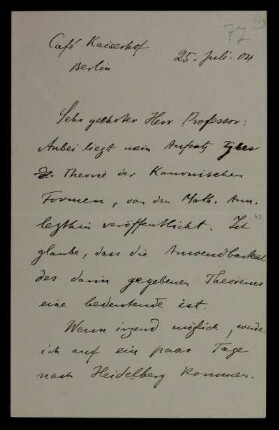 77
Café Kaiserhof
Berlin
25. Juli. 04
Sehr geehrter Herr Professor:
Anbei liegt mein Aufsatz zur
Theorie der Kanonischen
Formen, von den Math. Ann.
letzthin veröffentlicht. Ich
glaube, dass die Anwendbarkeit
des darin gegebenen Theorems
eine bedeutende ist.
Wenn irgend möglich, werde
ich auf ein paar Tage
nach Heidelberg kommen.